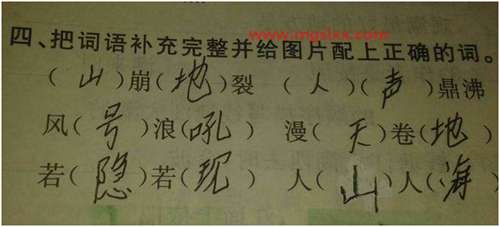 www.mgslxx.com
四、把词语补充完整并给图片配上正确的词。
(山)崩(地)裂 (人)(声)鼎沸
风(号)浪(吼) 漫(天)卷(地)
若(隐)若(现) 人(山)人(海)